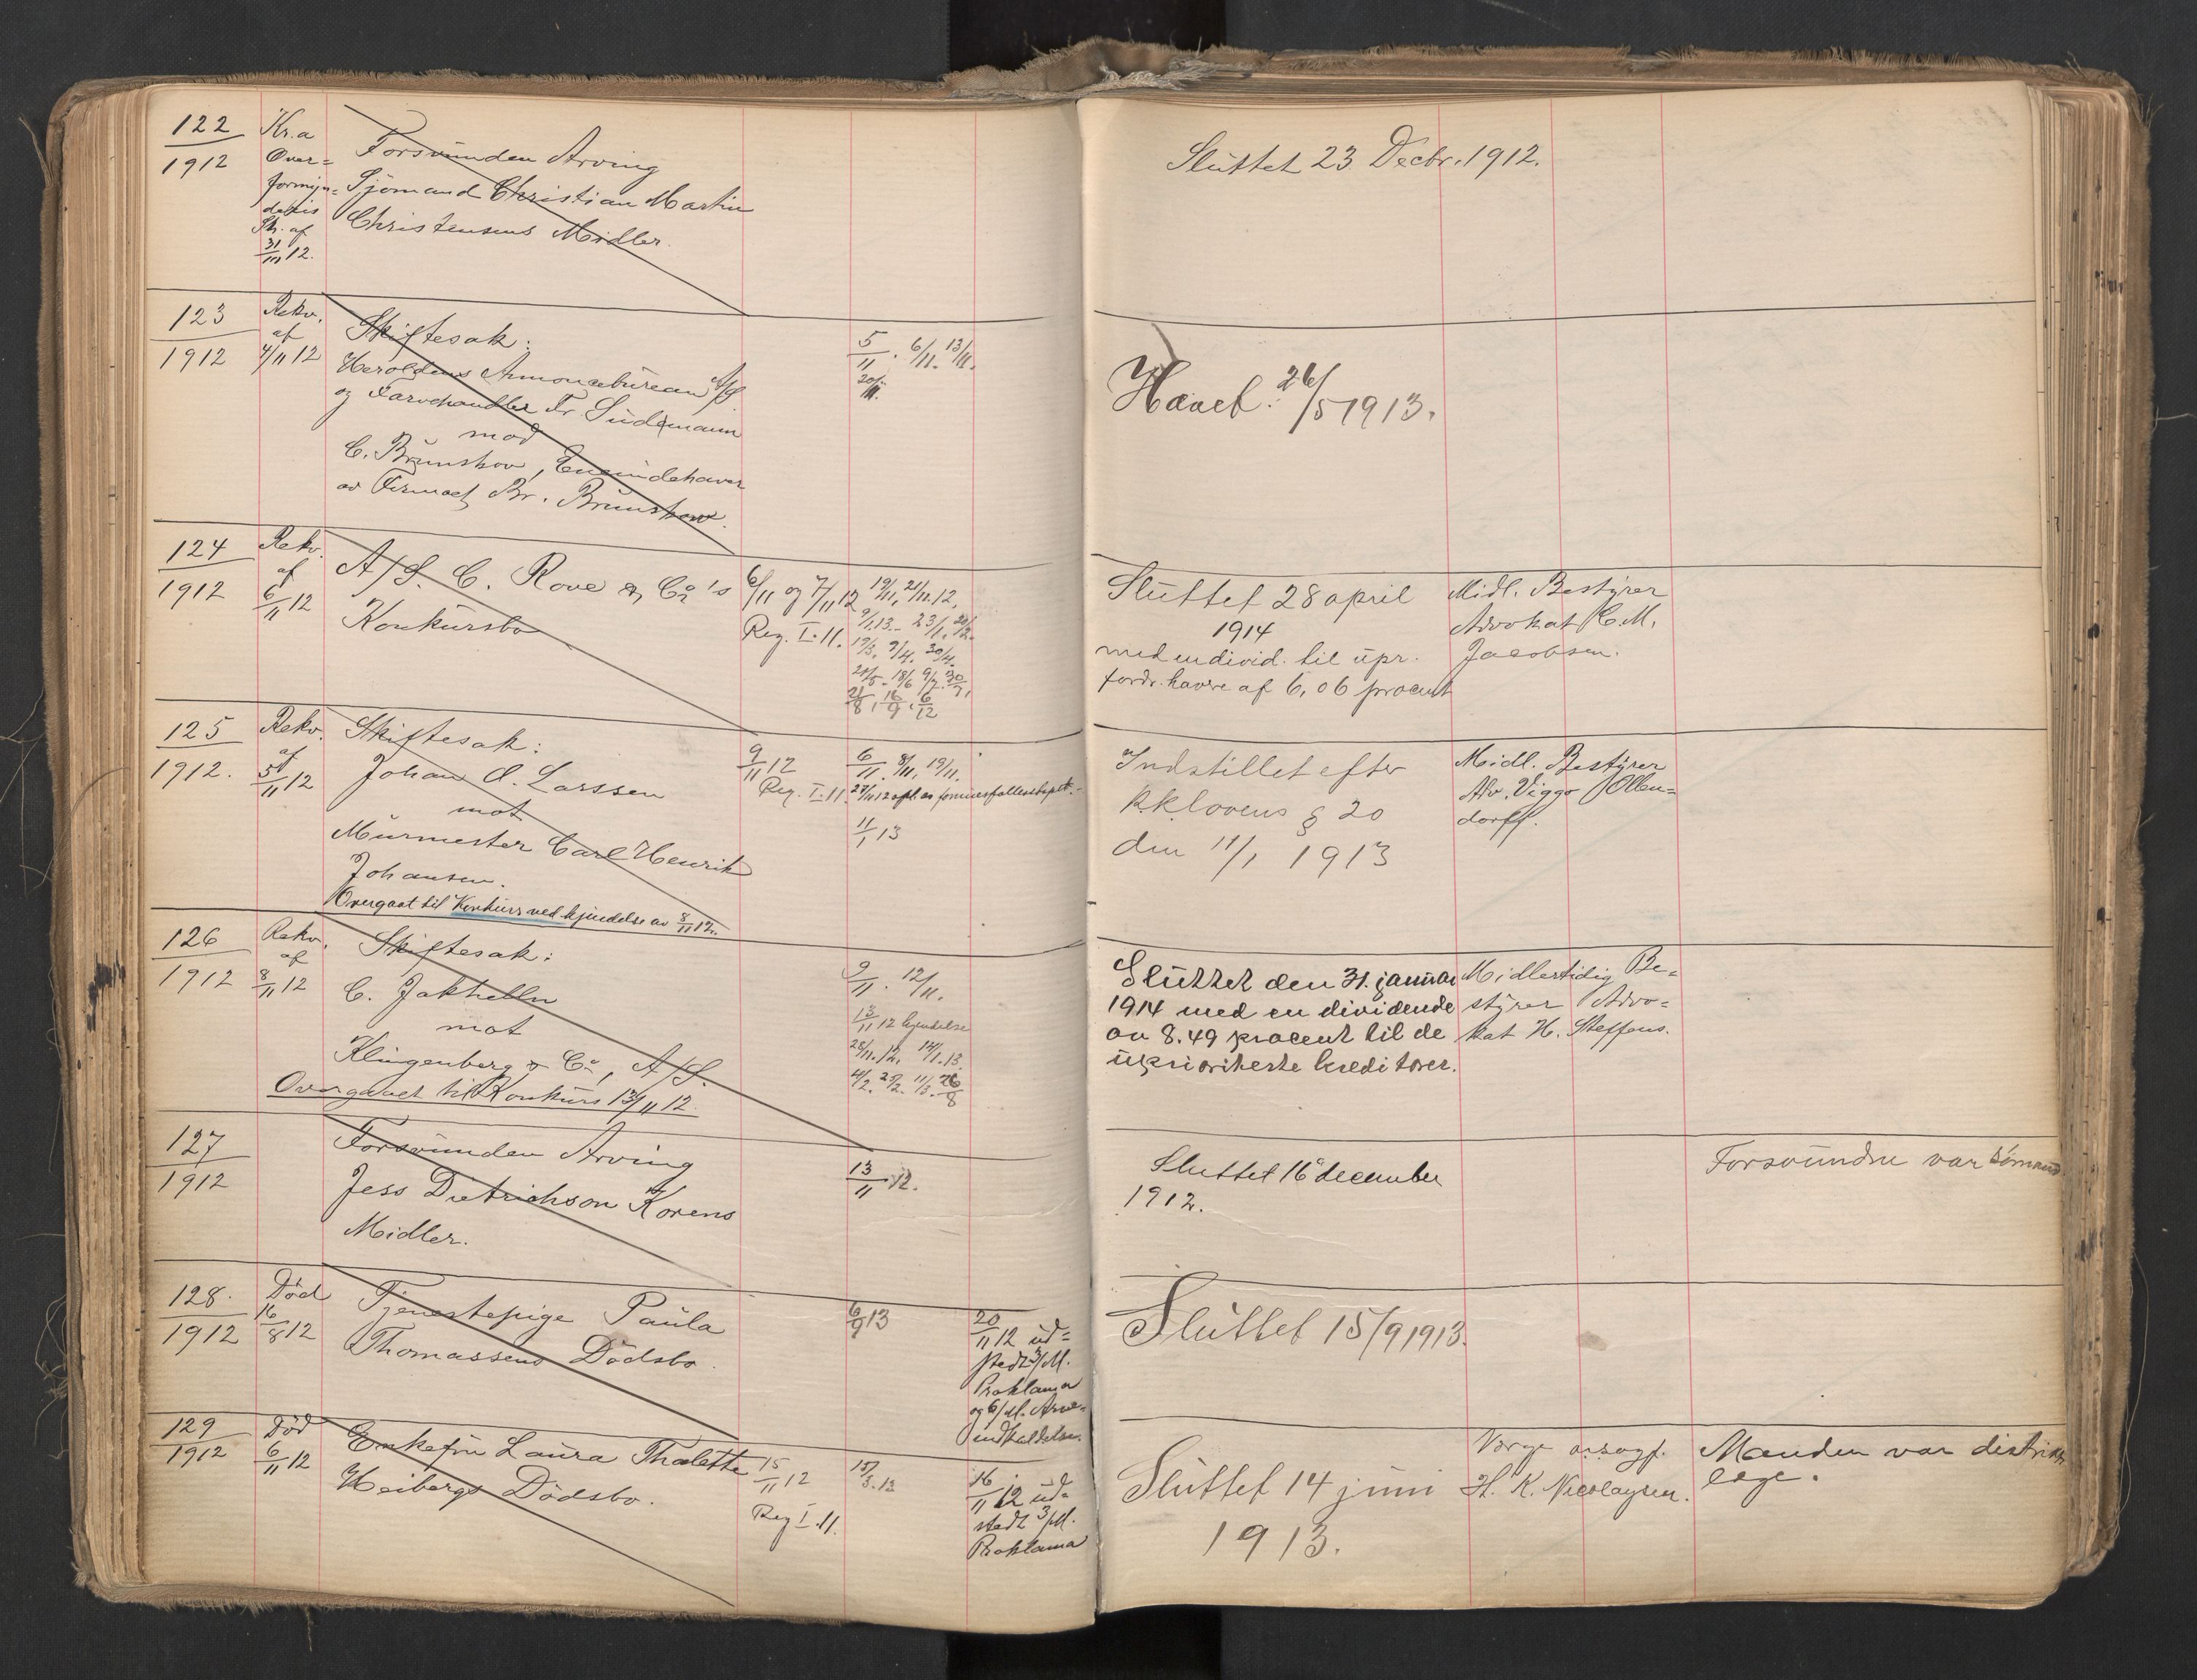 122
1912
Kr.a
Over=
formyn=
deris
Sk. af
31/III 12.
Forsvunden Arving
Sjömand Christian Martin
Christensens Midler.
Sluttet 23 Decbr. 1912.
123
1912
Rekv.
af
4/11 12
Skiftesak:
Heroldens Annoncebureau A/S
og Farvehandler Fr. Sudmann
mod
C. Brunskov, Eneindehaver
av Firmaet Br. Brunskov.
5/11. 6/11. 13/11.
20/11.
Hævet: 26/5 1913.
124
1912
Rekv.
af
6/11 12
A/S. C. Rove & Co's
Konkursbo
6/11 og 7/11 12
Reg. I. 11.
19/11, 21/11.12.
9/1.13. 23/1.
19/3, 9/4. 30/4.
21/5. 18/6 9/7. 30/7,
21/8, 16/9, 6/12
Sluttet 28 april
1914
med en divid. til upr.
fordr. havre af 6,06 procent
Midl. Bestyrer
Advokat C. M.
Jacobsen.
125
1912.
Rekv.
af
5/11 12
Skiftesak:
Johan A. Larssen
mot
Murmester Carl Henrik
Johansen.
Overgaat til Konkurs ved kjendelse av 8/11 12.
9/11 12
Reg. I. 11.
6/11. 8/11, 19/11.
27/11 12
11/1 13
Indstillet efter
K.K.lovens § 20
den 11/1 1913
Midl. Bestyrer
Adv. Viggo Ollen=
dorff.
126
1912
Rekv.
af
8/11 12
Skiftesak:
C. Jakhelln
mot
Klingenberg & Co, A/S.
Overgaaet til Konkurs 13/11 12.
9/11. 12/11.
13/11 12 kjendelse
28/11.12. 14/1.13.
4/2. 25/2. 11/3. 26/8
Sluttet den 31. januar
1914 med en dividende
av 8.49 procent til de
uprioriterte kreditorer.
Midlertidig Be=
styrer Advo=
kat H. Steffens.
127
1912
Forsvunden Arving
Jess Dietrichson Korens
Midler.
13/11 12.
Sluttet 16 december
1912.
Forsvundne var sömand
128.
1912
Död
16/8 12
Tjenestepige Paula
Thomassens Dödsbo.
6/9 13
20/11 12 ud=
stedt 3/M.
Proklama
og 6/M. Arve=
indkaldelse.
Sluttet 15/9 1913.
129
1912
Död
6/11 12
Enkefru Laura Thalette
Heibergs Dödsbo.
15/11 12
Reg I. 11.
15/3.13
16/11 12 ud=
stedt 3/M.
Proklama
Sluttet 14 juni
1913.
Verge o.r.sagf.
H. K. Nicolaysen.
Manden var distrikts
læge.